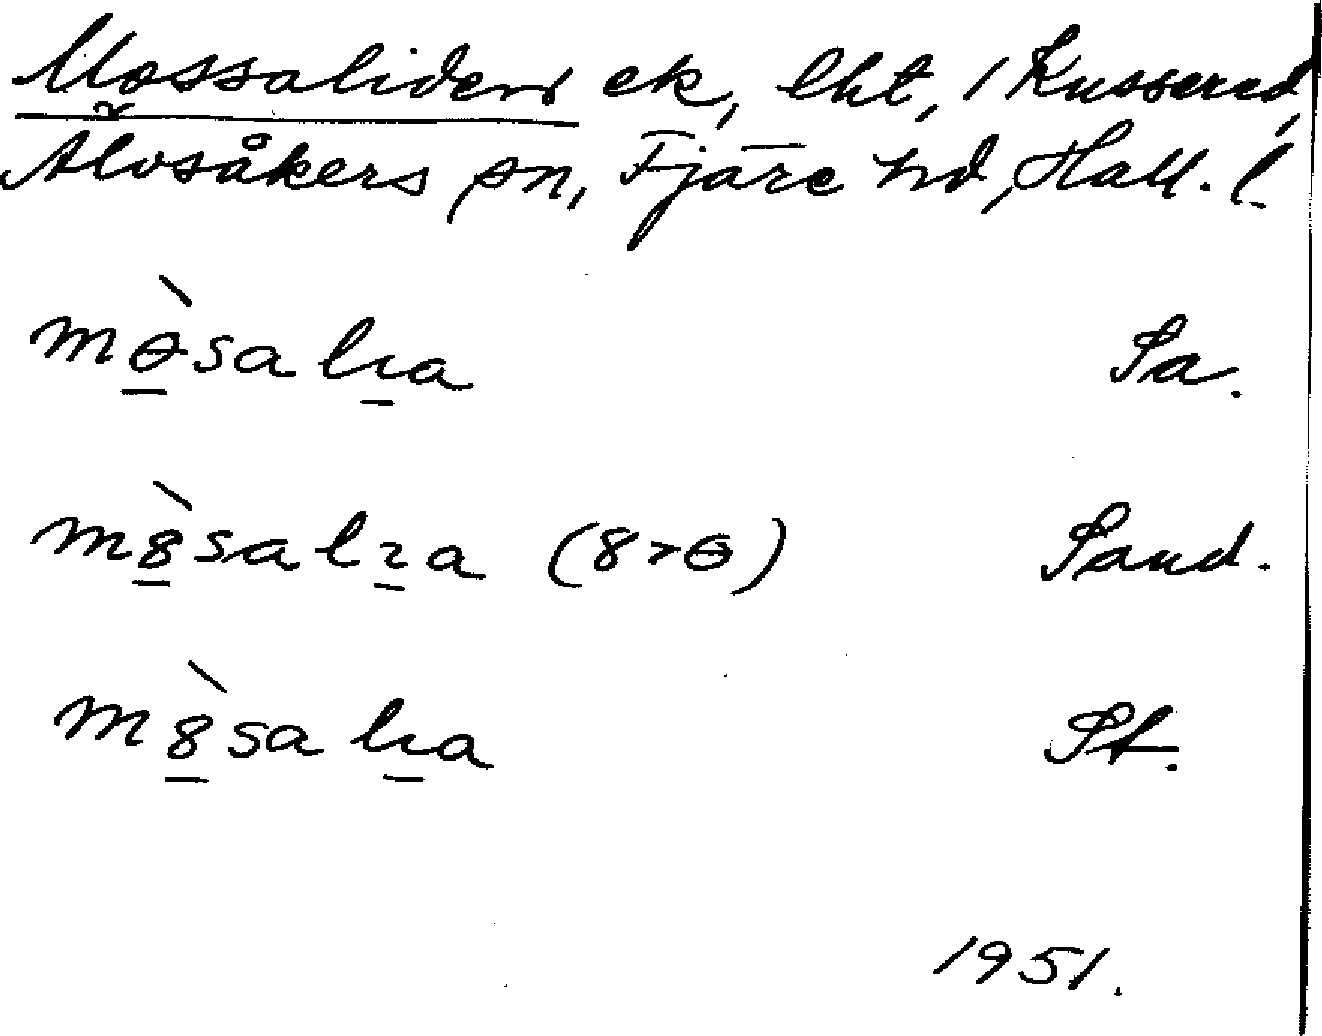 Mossaliden ek, lht, i Kussered,
Älvsåkers sn, Fjäre hd, Hall. l.
mɵ̀salıa Sa.
m8̀salɿa (8>ɵ) Sand.
m8̀salıa St.
1951.